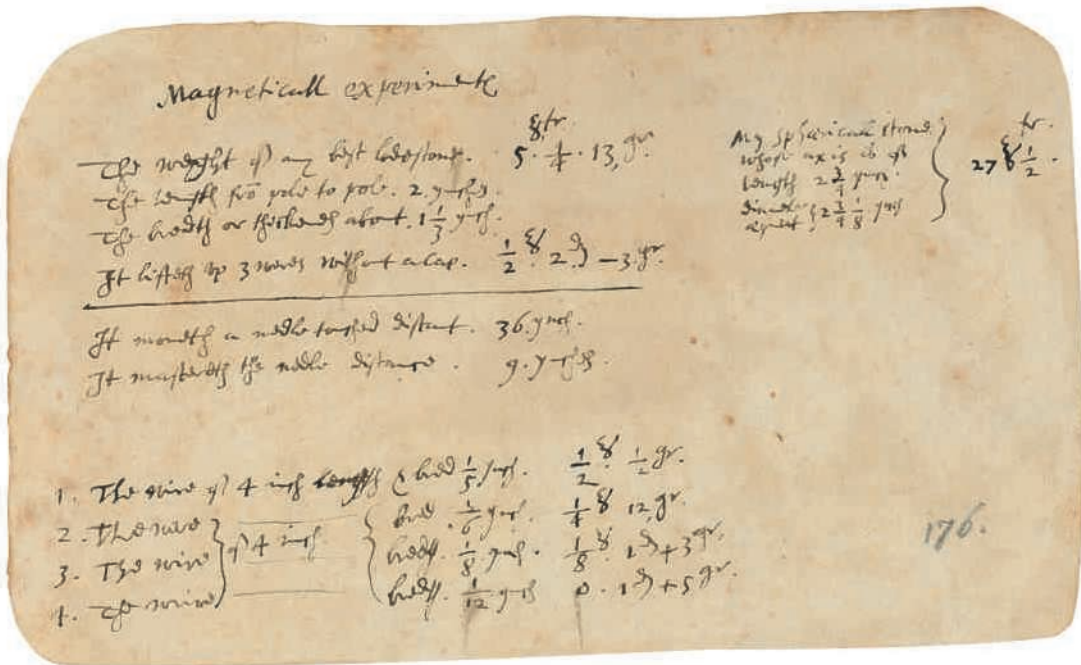 Magneticall experimentes
The weight of my best lodestone. 5.℥ 1/4 tr. 13, gr.
The length frō pole to pole. 2. ynches.
The bredth or thicknes about. 1 1/3 ynch.
It lifteth up 3 wires without a cap. 1/2 ℥. 2 ℈ – 3 gr.
It moueth a nedle touched distant. 36. ynch.
It mastereth the nedle distance. 9. ynches.
My sphericall stone
whose axis is of
length 2 3/4 ynch.
diameter
2 3/4 1/8 ynch
27 ℥ 1/2 tr.
1. The wire of 4 inch length & bred 1/5 ynch. 1/2 ℥. 1/2 gr.
2. The wire bred. 1/6 ynch. 1/4 ℥ 12, gr.
3. The wire of 4 inch bredth. 1/8 ynch. 1/8 ℥. 1 ℈ + 3 gr.
4. The wire bredth. 1/12 ynch 0. 1 ℈ + 5 gr.
176.